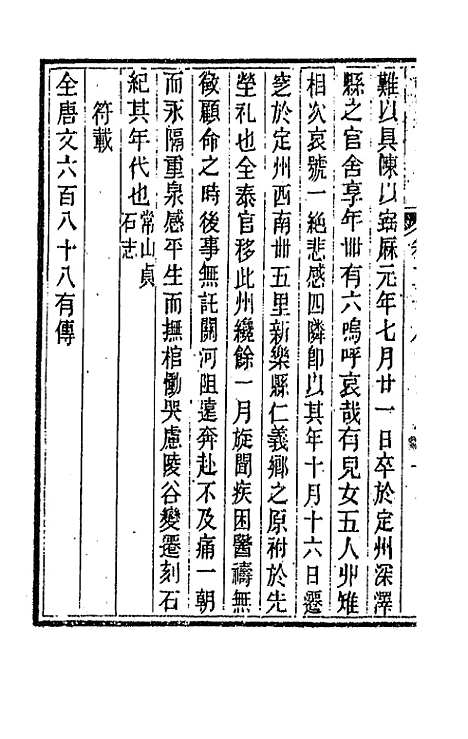 難以具陳以寳厤元年七月廿一日卒於定州深澤
縣之官舍享年卌有六嗚呼哀哉有兒女五人丱雉
相次哀號一絶悲感四隣卽以其年十月十六日遷
窆於定州西南卌五里新樂縣仁義鄉之原祔於先
塋礼也全泰官移此州纔餘一月旋聞疾困醫禱無
徵顧命之時後事無託關河阻遠奔赴不及痛一朝
而永隔重泉感平生而撫棺慟哭慮陵谷變遷刻石
紀其年代也常山貞石志
符載
全唐文六百八十八有傳